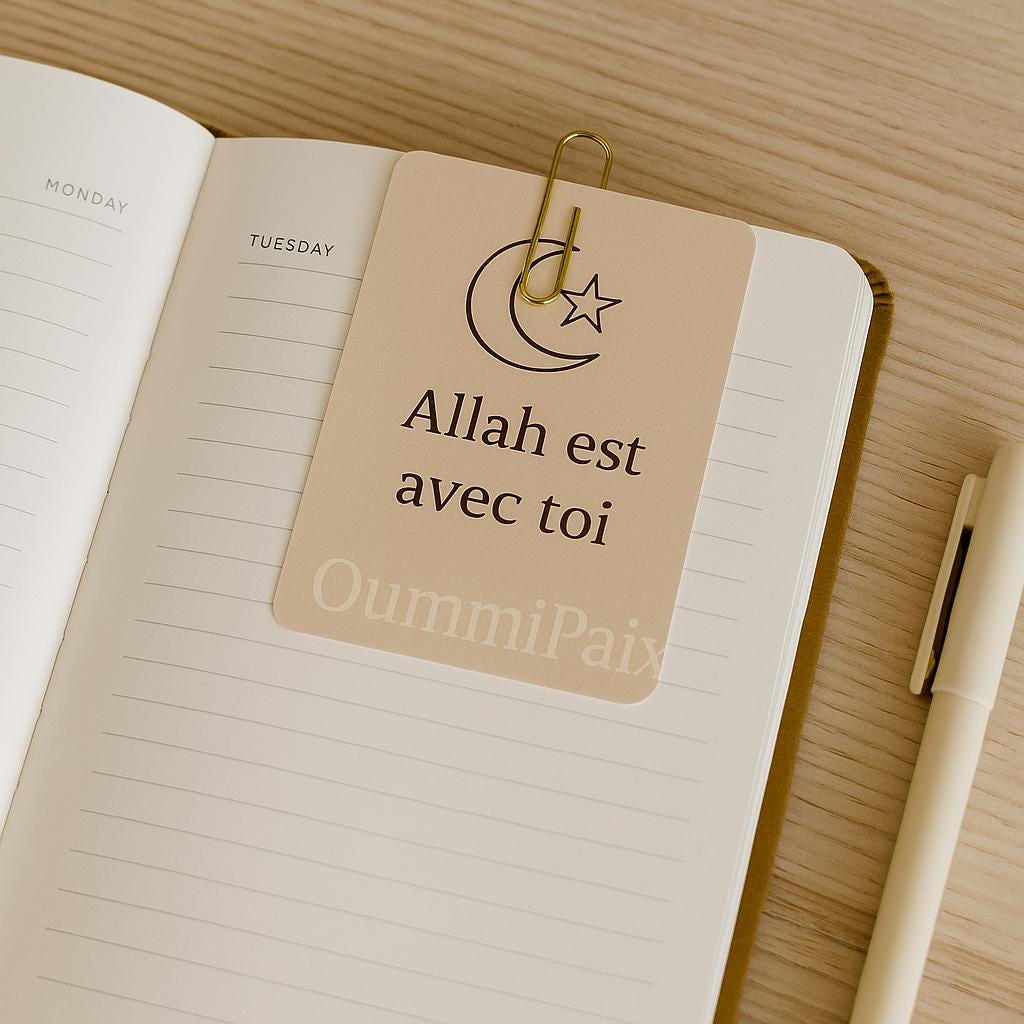 MONDAY
TUESDAY
Allah est
avec toi
OummiPaix